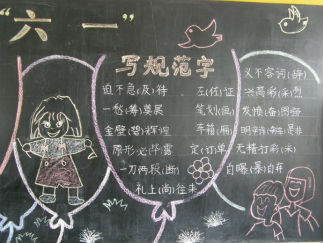 “六一”
写规范字
迫不急(及)待
一愁(筹)莫展
金壁(碧)辉煌
原形必(毕)露
一刀两段(断)
礼上(尚)往来
左(佐)证
笔划(画)
车箱(厢)
定(订)单
义不容词(辞)
兴高彩(采)烈
发愤(奋)图强
明辩(辨)是非
无精打彩(采)
自曝(暴)自弃